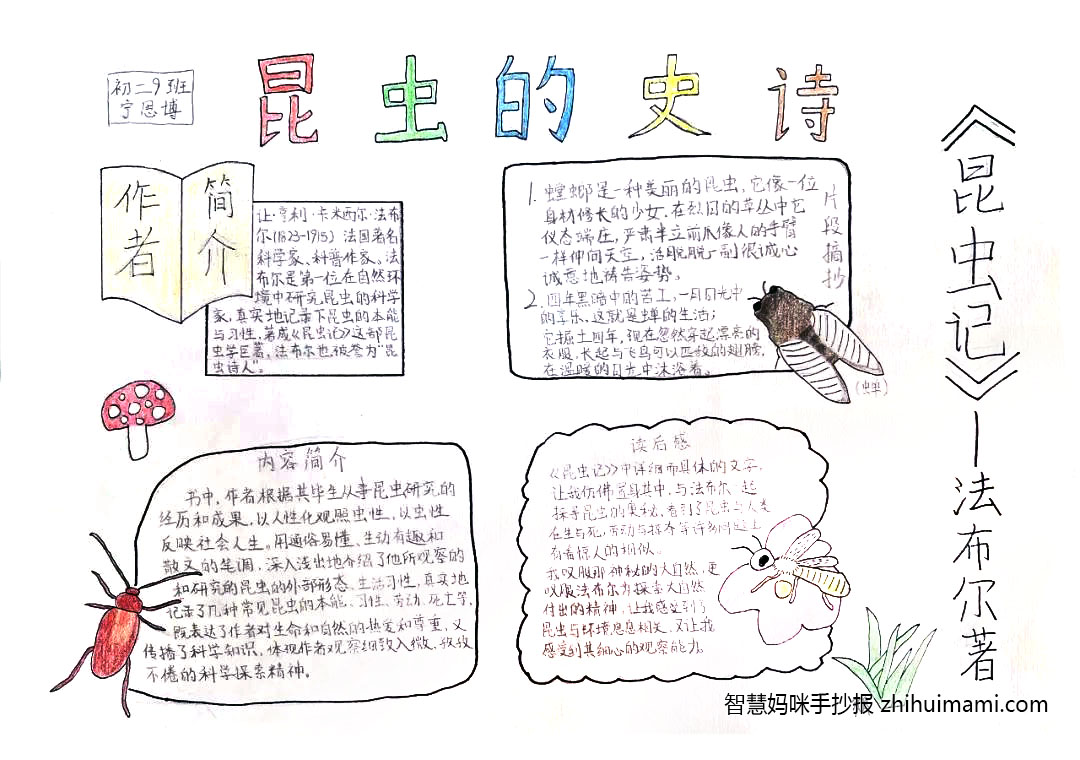 初二9班
宁恩博
昆虫的史诗
作者
简介
让·亨利·卡米西尔·法布
尔(1823-1915) 法国著名
科学家、科普作家。法
布尔是第一位在自然环
境中研究昆虫的科学
家,真实地记录下昆虫的本能
与习性,著成《昆虫记》这部昆
虫学巨著。法布尔也被誉为"昆
虫诗人"。
片段摘抄
1. 螳螂是一种美丽的昆虫,它像一位
身材修长的少女。在烈日的草丛中它
仪态端庄,严肃半立前爪像人的手臂
一样伸向天空,活脱脱一副很诚心
诚意地祷告姿势。
2. 四年黑暗中的苦工,一月日光中
的享乐,这就是蝉的生活;
它掘土四年,现在忽然穿起漂亮的
衣服,长起与飞鸟可以匹敌的翅膀,
在温暖的日光中沐浴着。
(蝉)
《昆虫记》—法布尔著
内容简介
书中,作者根据其毕生从事昆虫研究的
经历和成果,以人性化观照虫性,以虫性
反映社会人生。用通俗易懂、生动有趣和
散文的笔调,深入浅出地介绍了他所观察的
和研究的昆虫的外部形态、生活习性,真实地
记录了几种常见昆虫的本能、习性、劳动、死亡等,
既表达了作者对生命和自然的热爱和尊重,又
传播了科学知识,体现作者观察细致入微、孜孜
不倦的科学探索精神。
读后感
《昆虫记》中详细而具体的文字,
让我仿佛置身其中,与法布尔一起
探寻昆虫的奥秘,看到了昆虫与人类
在生与死,劳动与掠夺等许多问题上
有着惊人的相似。
我叹服那神秘的大自然,更
叹服法布尔为探索大自然
付出的精神,让我感受到了
昆虫与环境息息相关,又让我
感受到其细心的观察能力。
智慧妈咪手抄报 zhihuimami.com